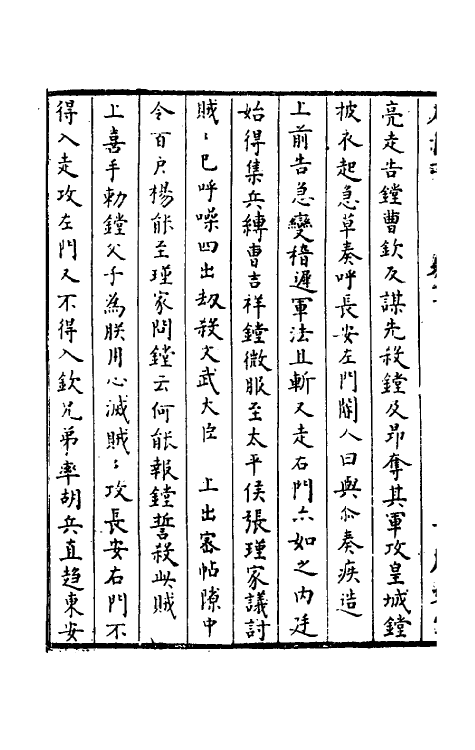 亮走告鏜曹欽反謀先殺鏜及昂奪其軍攻皇城鏜
披衣起急草奏呼長安左門閽人曰與尒奏疾造
上前告急變稽遲軍法且斬又走右門亦如之内廷
始得集兵縛曹吉祥鏜微服至太平侯張瑾家議討
賊〻已呼噪四出刼殺文武大臣　上出密帖隙中
令百户楊能至瑾家問鏜云何能報鏜誓殺此賊
上喜手勅鏜父子為朕用心滅賊〻攻長安右門不
得入走攻左門又不得入欽兄弟率胡兵直趋東安